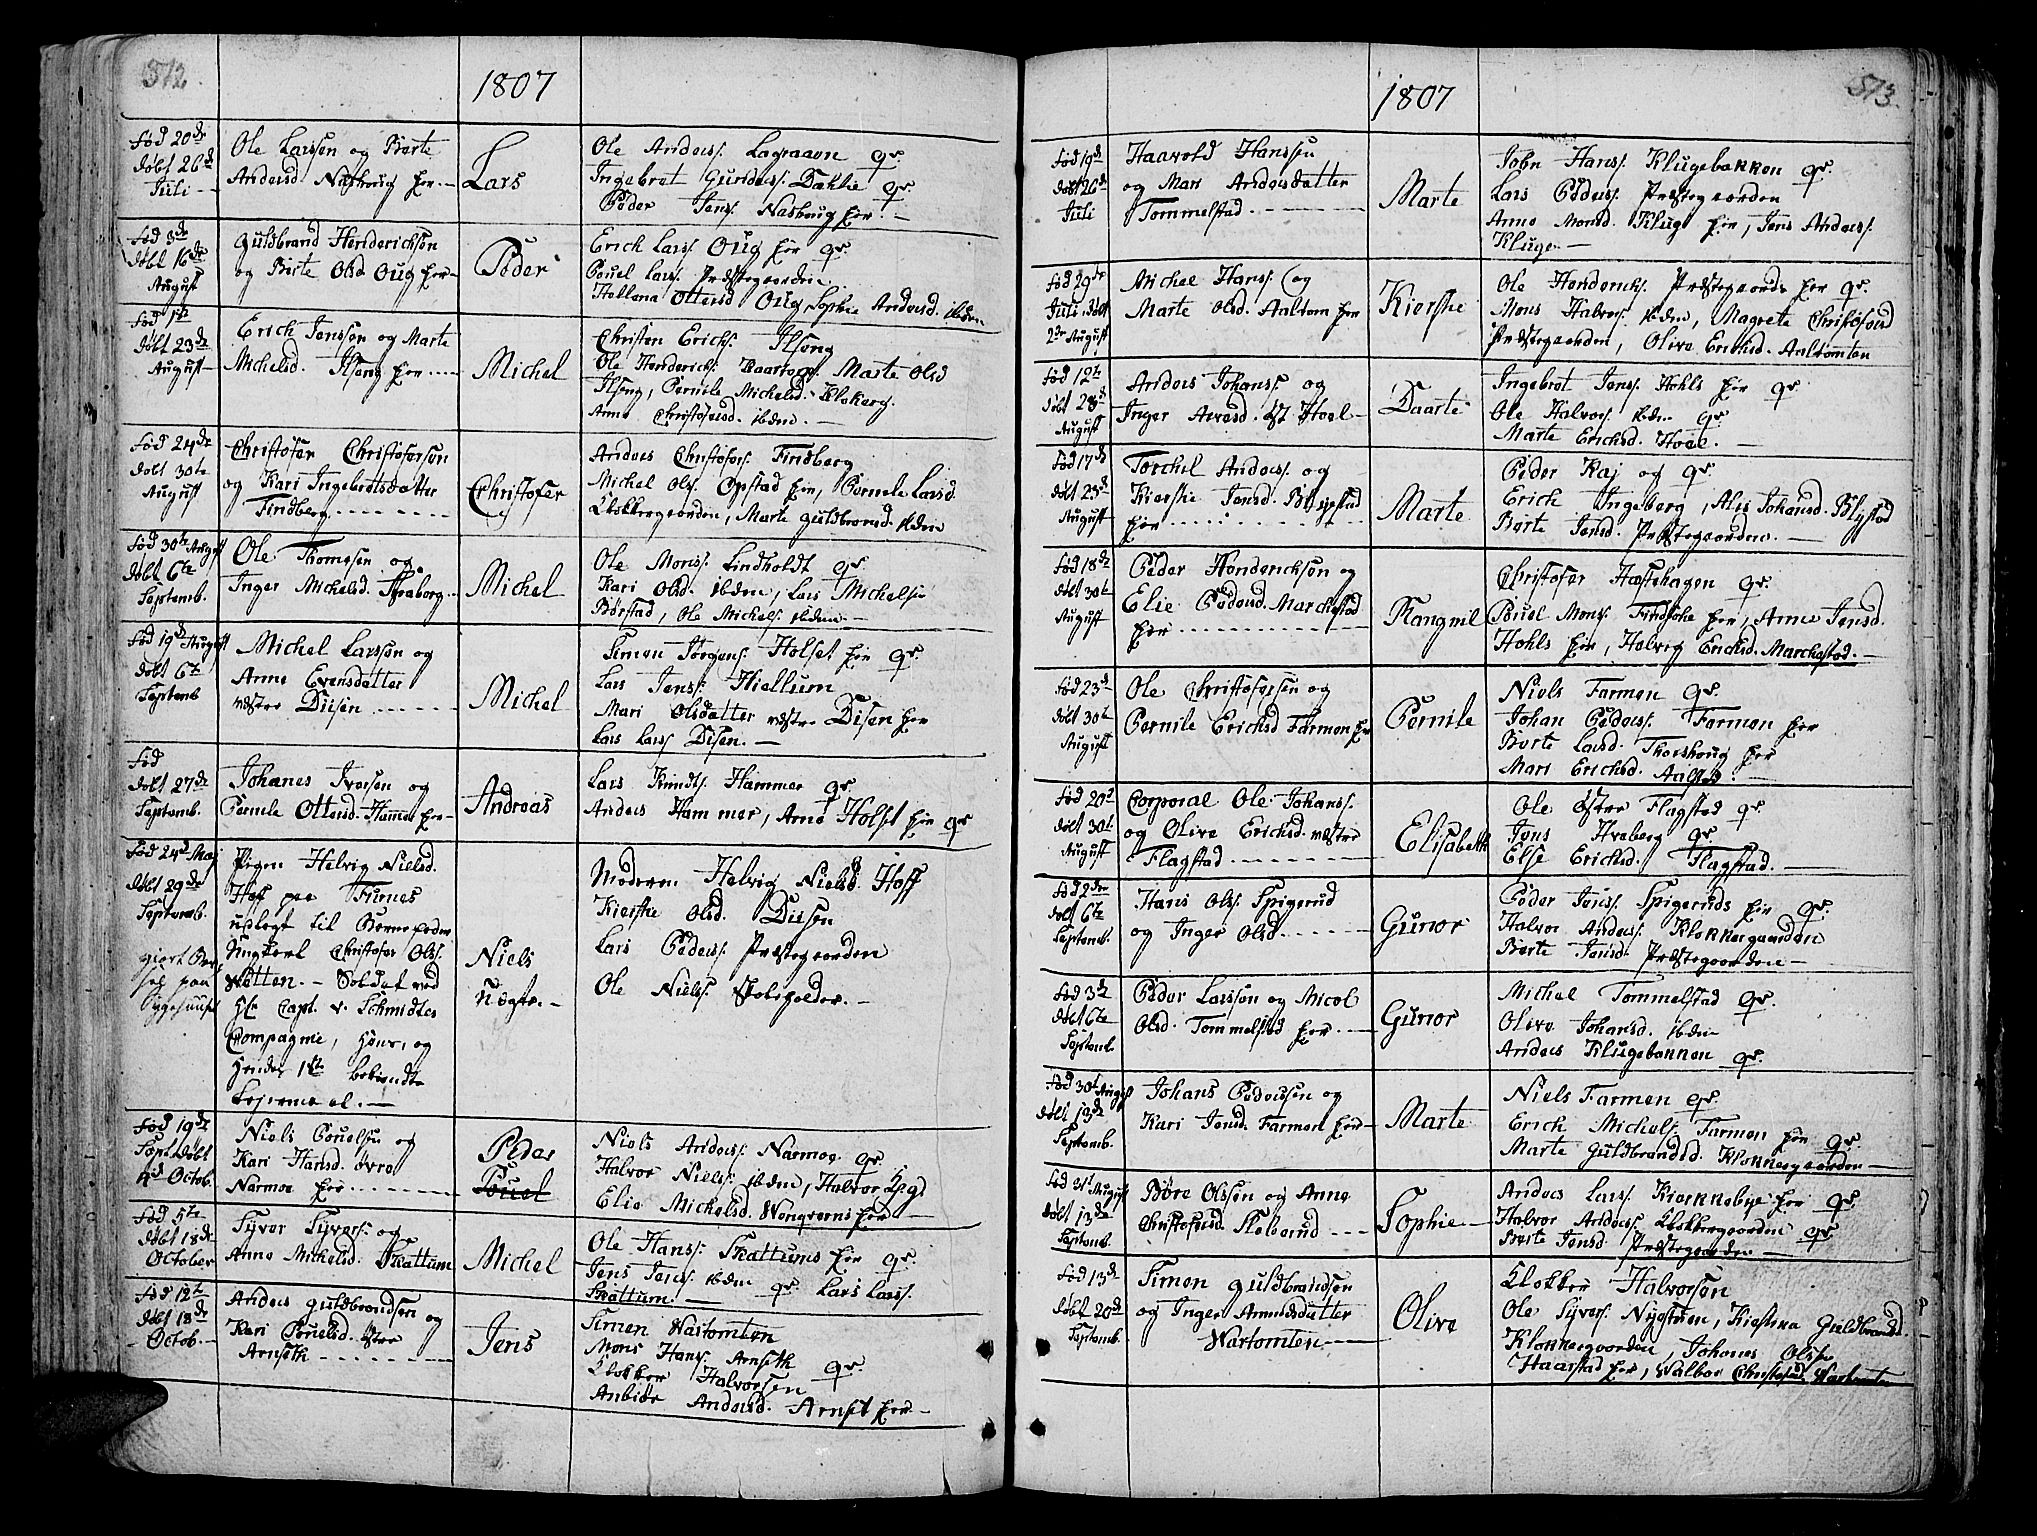 572.
1807
Fød 20de
døbt 26de
Juli
Ole Larssen og Berte
Andersd Nashoug her
Lars
Ole Anders. Lagraaen qr.
Ingebret Gunders. Dahlie qr
Peder Jens. Nashoug her
Fød 3de
døbt 16de
August
Guldbrand Henderichsen
og Birte Olsd Oug her
Peder
Erich Lars. Oug her qr.
Pouel Lars. Præstegaarden
Hellena Ottersd Oug, Sophie Andersd. ibiden
Fød 1te
døbt 23de
August
Erich Jenssen og Marte
Michelsd. Ilseng her
Michel
Christen Erichs. Ilseng
Ole Henderichs. Kaartorp. Marte Olsd
Ilseng, Pernile Michelsd. Kloberg.
Anne Christofersd. ibden.
Fød 24de
døbt 30te
August
Christofer Christofersen
og Kari Ingebretsdatter
Findberg
Christofer
Anders Christofers. Findberg
Michel Ols. Opstad her, Pernele Larsd
Klokkergaarden, Marte Guldbransd. ibden
Fød 30te August
døbt 6te
Septemb.
Ole Thomesen og
Inger Michelsd. Fraberg
Michel
Ole Mons. Lindholdt qr.
Kari Olsd. ibden, Lars Michelsen
Børstad, Ole Michels. ibden
Fød 19de August
døbt 6te
Septemb
Michel Larssen og
Anne Evensdatter
vestre Diisen
Michel
Simen Jørgens. Holset her qr.
Lars Jens. Hiellum
Mari Olsdatter vestre Disen her
Lars Lars Disen.
Fød
døbt 27de
Septemb.
Johanes Iversen og
Pernele Ottersd. Hamer her
Andreas
Lars Knudts. Hammer qr
Anders Hammer, Arne Holset her qr
Fød 24de Maj
døbt 29de
Septemb.
giort
sig paa
Sygehuuset
Pigen Helvig Nielsd.
Hoff paa Furnes
udlagt til Barnefader
Ungkarl Christofer Ols.
Watten. - Soldat ved
Hr Capt. v. Schmidtes
Compagnie, hans, og
hendes 1te bekiendte
Lejermaal.
Niels
Uægte.
Moderen Helvig Nielsd. Hoff
Kierstie Olsd. Diisen
Lars Peders. Præstegaarden
Ole Niels. Skoleholder.
Fød 19de
Sept. døbt
4de Octob.
Niels Pouelsen og
Kari Hansd. øvre
Narmoe her
Peder
Pouel
Niels Anders. Narmoe qr.
Halvor Niels. ibden, Halvor
Elie Michelsd. Wonqvernsher
Fød 5te
døbt 18de
October
Syver Syvers. og
Anne Michelsd. Skattum
Michel
Ole Hans. Skattums her qr.
Jens Jens. ibden qr Lars Lars.
Skattum.
Fød 12te
døbt 18de
Octob.
Anders Guldbrandsen og
Kari Pouelsd. østre
Arnseth
Jens
Simen Wartomten
Mons Hans. Arnseth
Klokker Halvorsen qr.
Anbiør Andersd. Arnset her
573.
1807
Fød 19de
døbt 26de
Juli
Haavold Hanssen
og Mari Andersdatter
Tommelstad
Marte
John Hans. Klugebakken qr.
Lars Peders. Præstegaarden
Anne Monsd. Klug her, Jens Anders.
Kluge
Fød 29de
Juli døbt
2den August
Michel Hans. og
Marte Olsd. Aaltom her
Kierstie
Ole Henderichs. Præstegaards her qr.
Mons Halvors. ibden, Magrete Christofersd
Præstegaarden, Olive Ericksd. Aaltomten
Fød 12te
døbt 23de
August
Anders Johans. og
Inger Aresd. øst Hoel
Daarte
Ingebret Jens. Hohls her qr
Ole Halvors ibden qr
Marte Ericksd. Hoel.
Fød 17de
døbt 23de
August
Torchel Anders. og
Kierstie Jensd. Blystad
her
Marte
Peder Kaj og qr.
Erich Ingeberg, Alis Johansd. Blystad
Berte Jensd. Præstegaarden.
Fød 18de
døbt 30te
August
Peder Henderichsen og
Elie Pedersd. Marchestad
her
Rangnil
Christofer Hastehagen qr.
Pouel Mons. Findsohe her, Anne Jensd.
Hohls her, Halvig Ericksd. Marchestad.
Fød 23de
døbt 30te
August
Ole Christofersen og
Pernile Ericksd Farmen her
Pernile
Niels Farmen qr.
Johan Peders. Farmen her
Berte Larsd. Thorshoug her
Mari Ericksd. Aalstad
Fød 20de
døbt 30te
August
Corporal Ole Johans.
og Olive Ericksd. vestre
Flagstad
Elisabeth
Ole østre Flagstad qr.
Jens Hraberg qr
Else Ericksd. Flagstad.
Fød 2den
døbt 6te
Septemb.
Hans Ols. Spigerud
og Inger Olsd.
Gunor
Peder Jens. Spigeruds her qr.
Halvor Anders. Klokkergaarden
Berte Jensd. Præstegaarden
Fød 3de
døbt 6te
Septemb.
Peder Larssen og Nicol
Olsd. Tommelstad her.
Gunor
Michel Tommelstad qr.
Olive Johansd. ibden
Anders Klugebakken qr.
Fød 30te August
døbt 13de
Septemb.
Johans Pedersen og
Kari Jensd Farmen her
Marte
Niels Farmen qr.
Erich Michels. Farmen her qr
Marte Guldbrandsd. Klokkergaarden
Fød 31te August
døbt 13de
Septemb.
Børe Olssen og Anne
Christofersd. Slobrend
Sophie
Anders Lars. Kierkkebye her qr.
Halvor Anders. Klokkergaarden qr
Berte Jensd. Præstegaarden
Fød 13de
døbt 20de
Septemb.
Simen Guldbrandsen
og Inger Amundsdatter
Wartomten
Olive
Klokker Halvorsen
Ole Syvers. Nystuen, Kiestina Guldbrandsd.
Klokkergaarden, Johanes Olsen
Haarstad her, Walbor Christofersd Wartomten